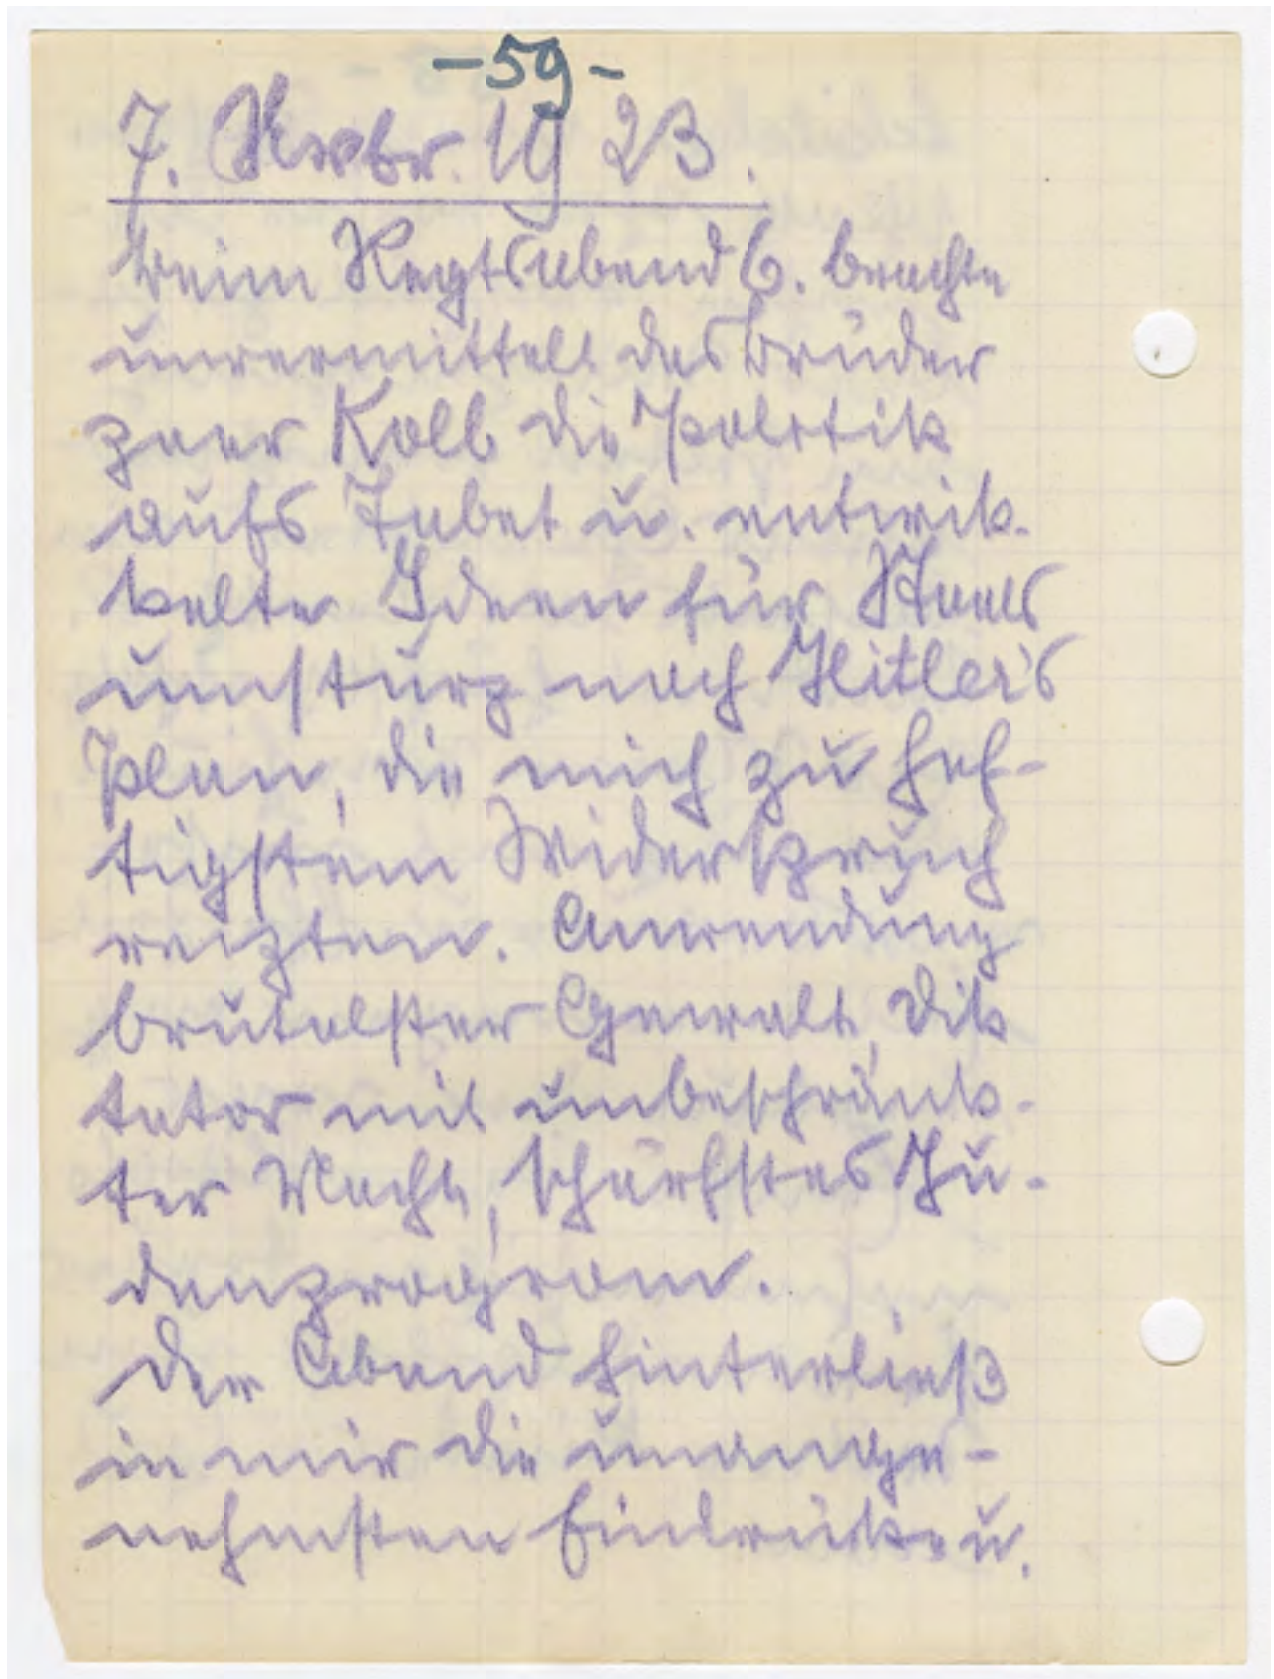 -59-
7. Novbr. 1923.
beim Regtsabend 6. brachte
unvermittelt das Brüder
paar Kolb die Politik
aufs Tabet u. entwik-
kelte Ideen für Staats
umsturz nach Hitler's
Plan, die mich zu hef-
tigstem Widerspruch
reizten. Anwendung
brutalster Gewalt, Dik
tator mit unbeschränk-
ter Macht, schärfstes Ju-
denprogrom.
Der Abend hinterließ
in mir die unange-
nehmsten Eindrücke u.